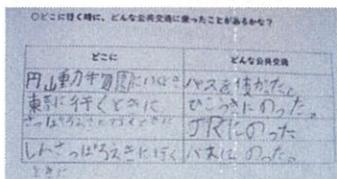 ○どこに行く時に、どんな公共交通に乗ったことがあるかな?
どこに
どんな公共交通
円山動物園にいくとき
バスを使がた。
東京に行くときに
ひこうきにのった。
さっぽろえきに行くときに
JRにのった
しんさっぽろえきに行く
ときに
バスにのった。